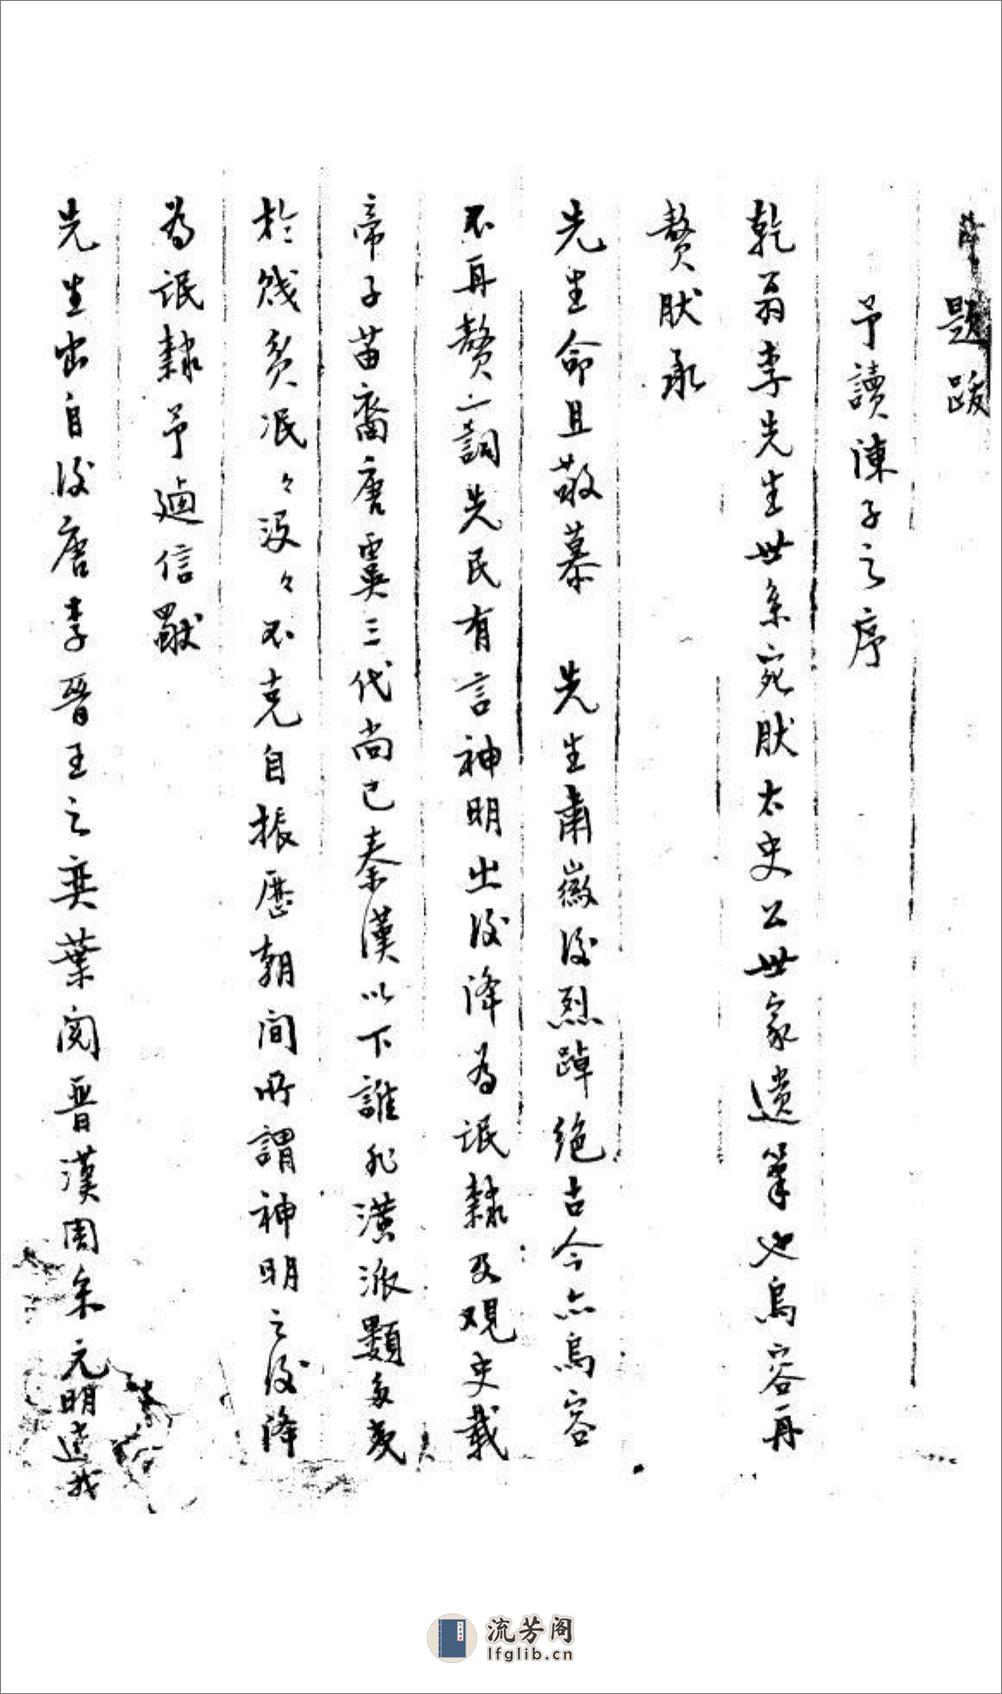 題跋
予讀陳子之序
乾翁李先生世系宛肰太史公世家遺筆也烏容再
贅肰承
先生命且敬慕 先生肅徽後烈踔絕古今亦烏容
不再贅一詞先民有言神明之後降為氓隸及觀史載
帝子苗裔唐虞三代尚已秦漢以下誰非潢派顯多夷
於賤貧泯々沒々不克自振歷朝間所謂神明之後降
為氓隸予廼信歟
先生出自後唐李晉王之奕葉閱晉漢周宋元明迄我
流芳阁
lfglib.cn